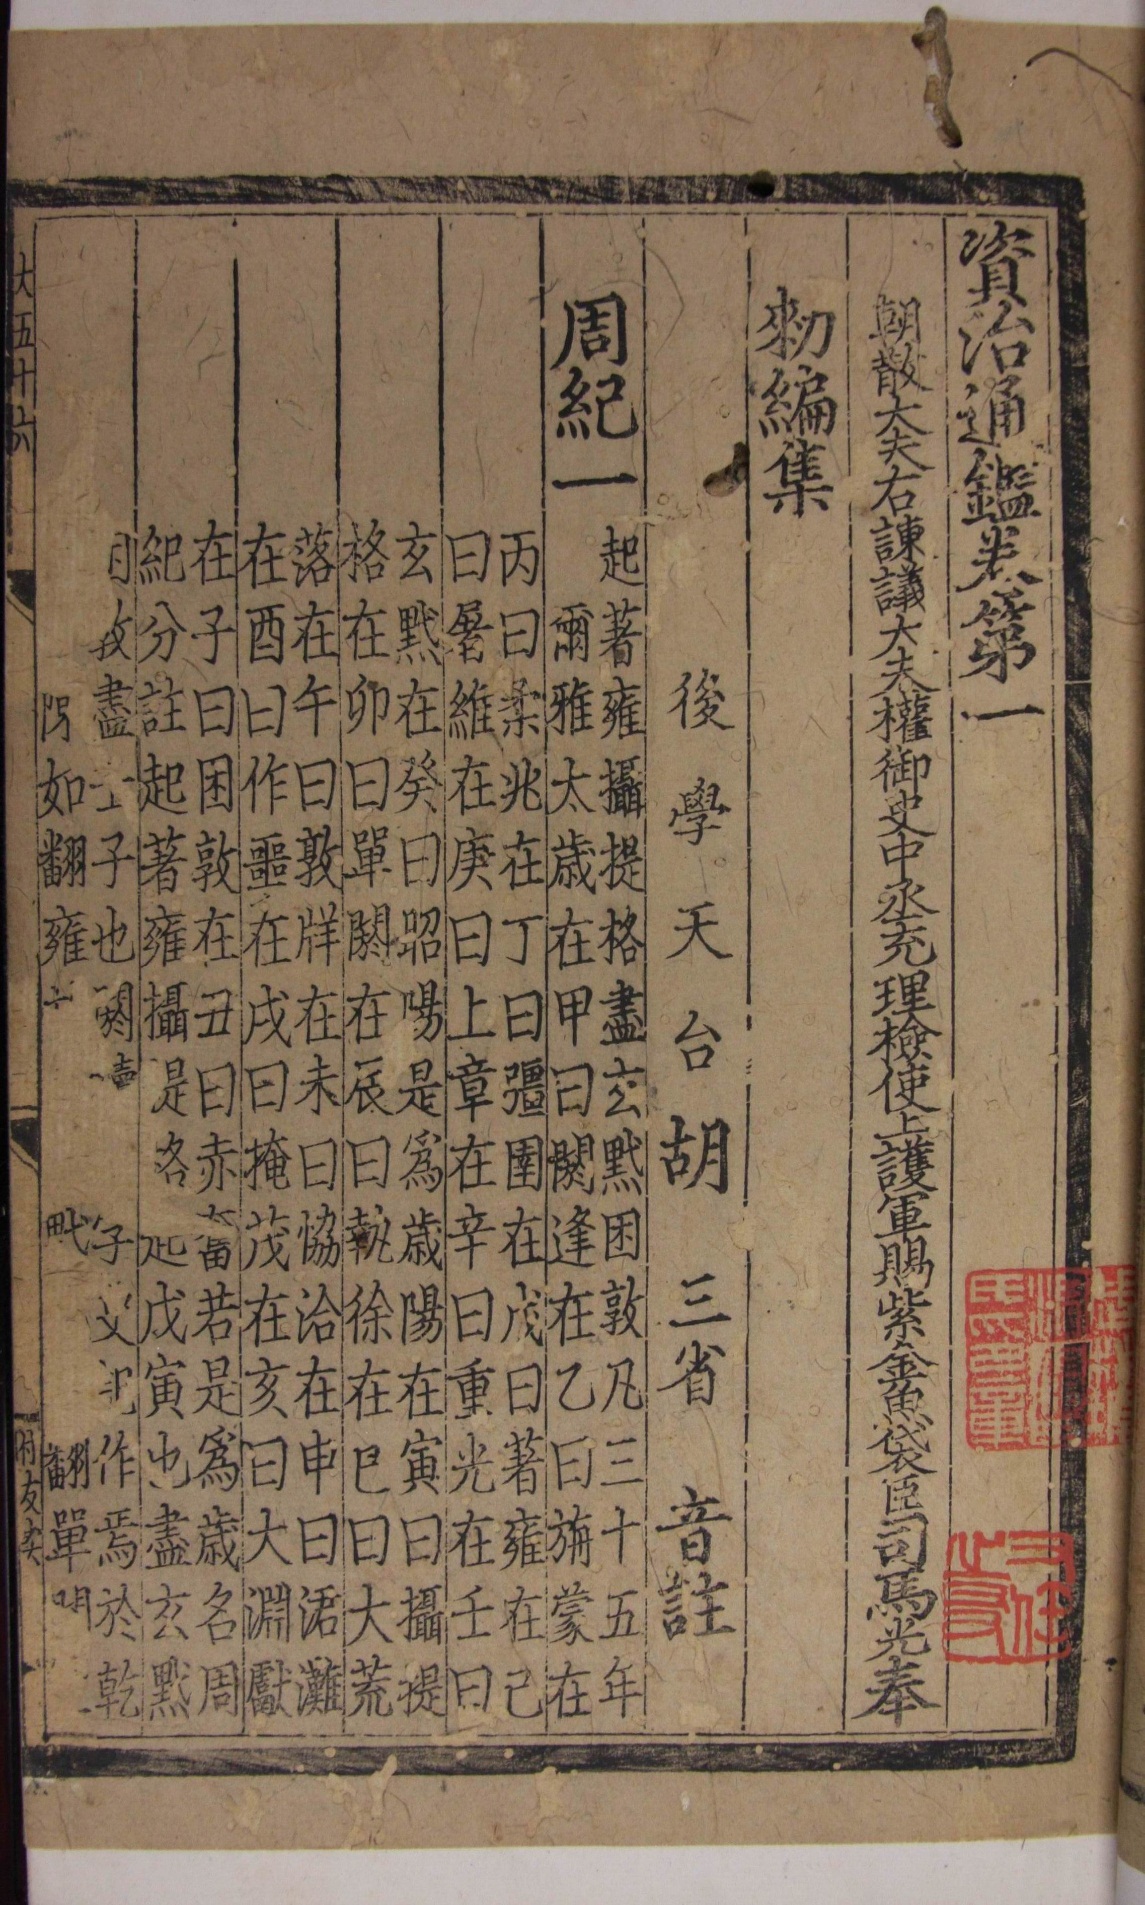 資治通鑑卷第一
朝散大夫右諫議大夫權御史中丞充理檢使上護軍賜紫金魚袋臣司馬光奉
勑編集
後學天台胡三省音註
周紀一
起著雍攝提格盡玄黓困敦凡三十五年
爾雅太歲在甲曰閼逢在乙曰旃蒙在
丙曰柔兆在丁曰彊圉在戊曰著雍在己
曰屠維在庚曰上章在辛曰重光在壬曰
玄黓在癸曰昭陽是為歲陽在寅曰攝提
格在卯曰單閼在辰曰執徐在巳曰大荒
落在午曰敦牂在未曰協洽在申曰涒灘
在酉曰作噩在戌曰掩茂在亥曰大淵獻
在子曰困敦在丑曰赤奮若是為歲名周
紀分註起著雍攝提格起戊寅也盡玄黓
敦盡 子也閼讀 子 作焉於乾
如翻雍 翻單
大五十六